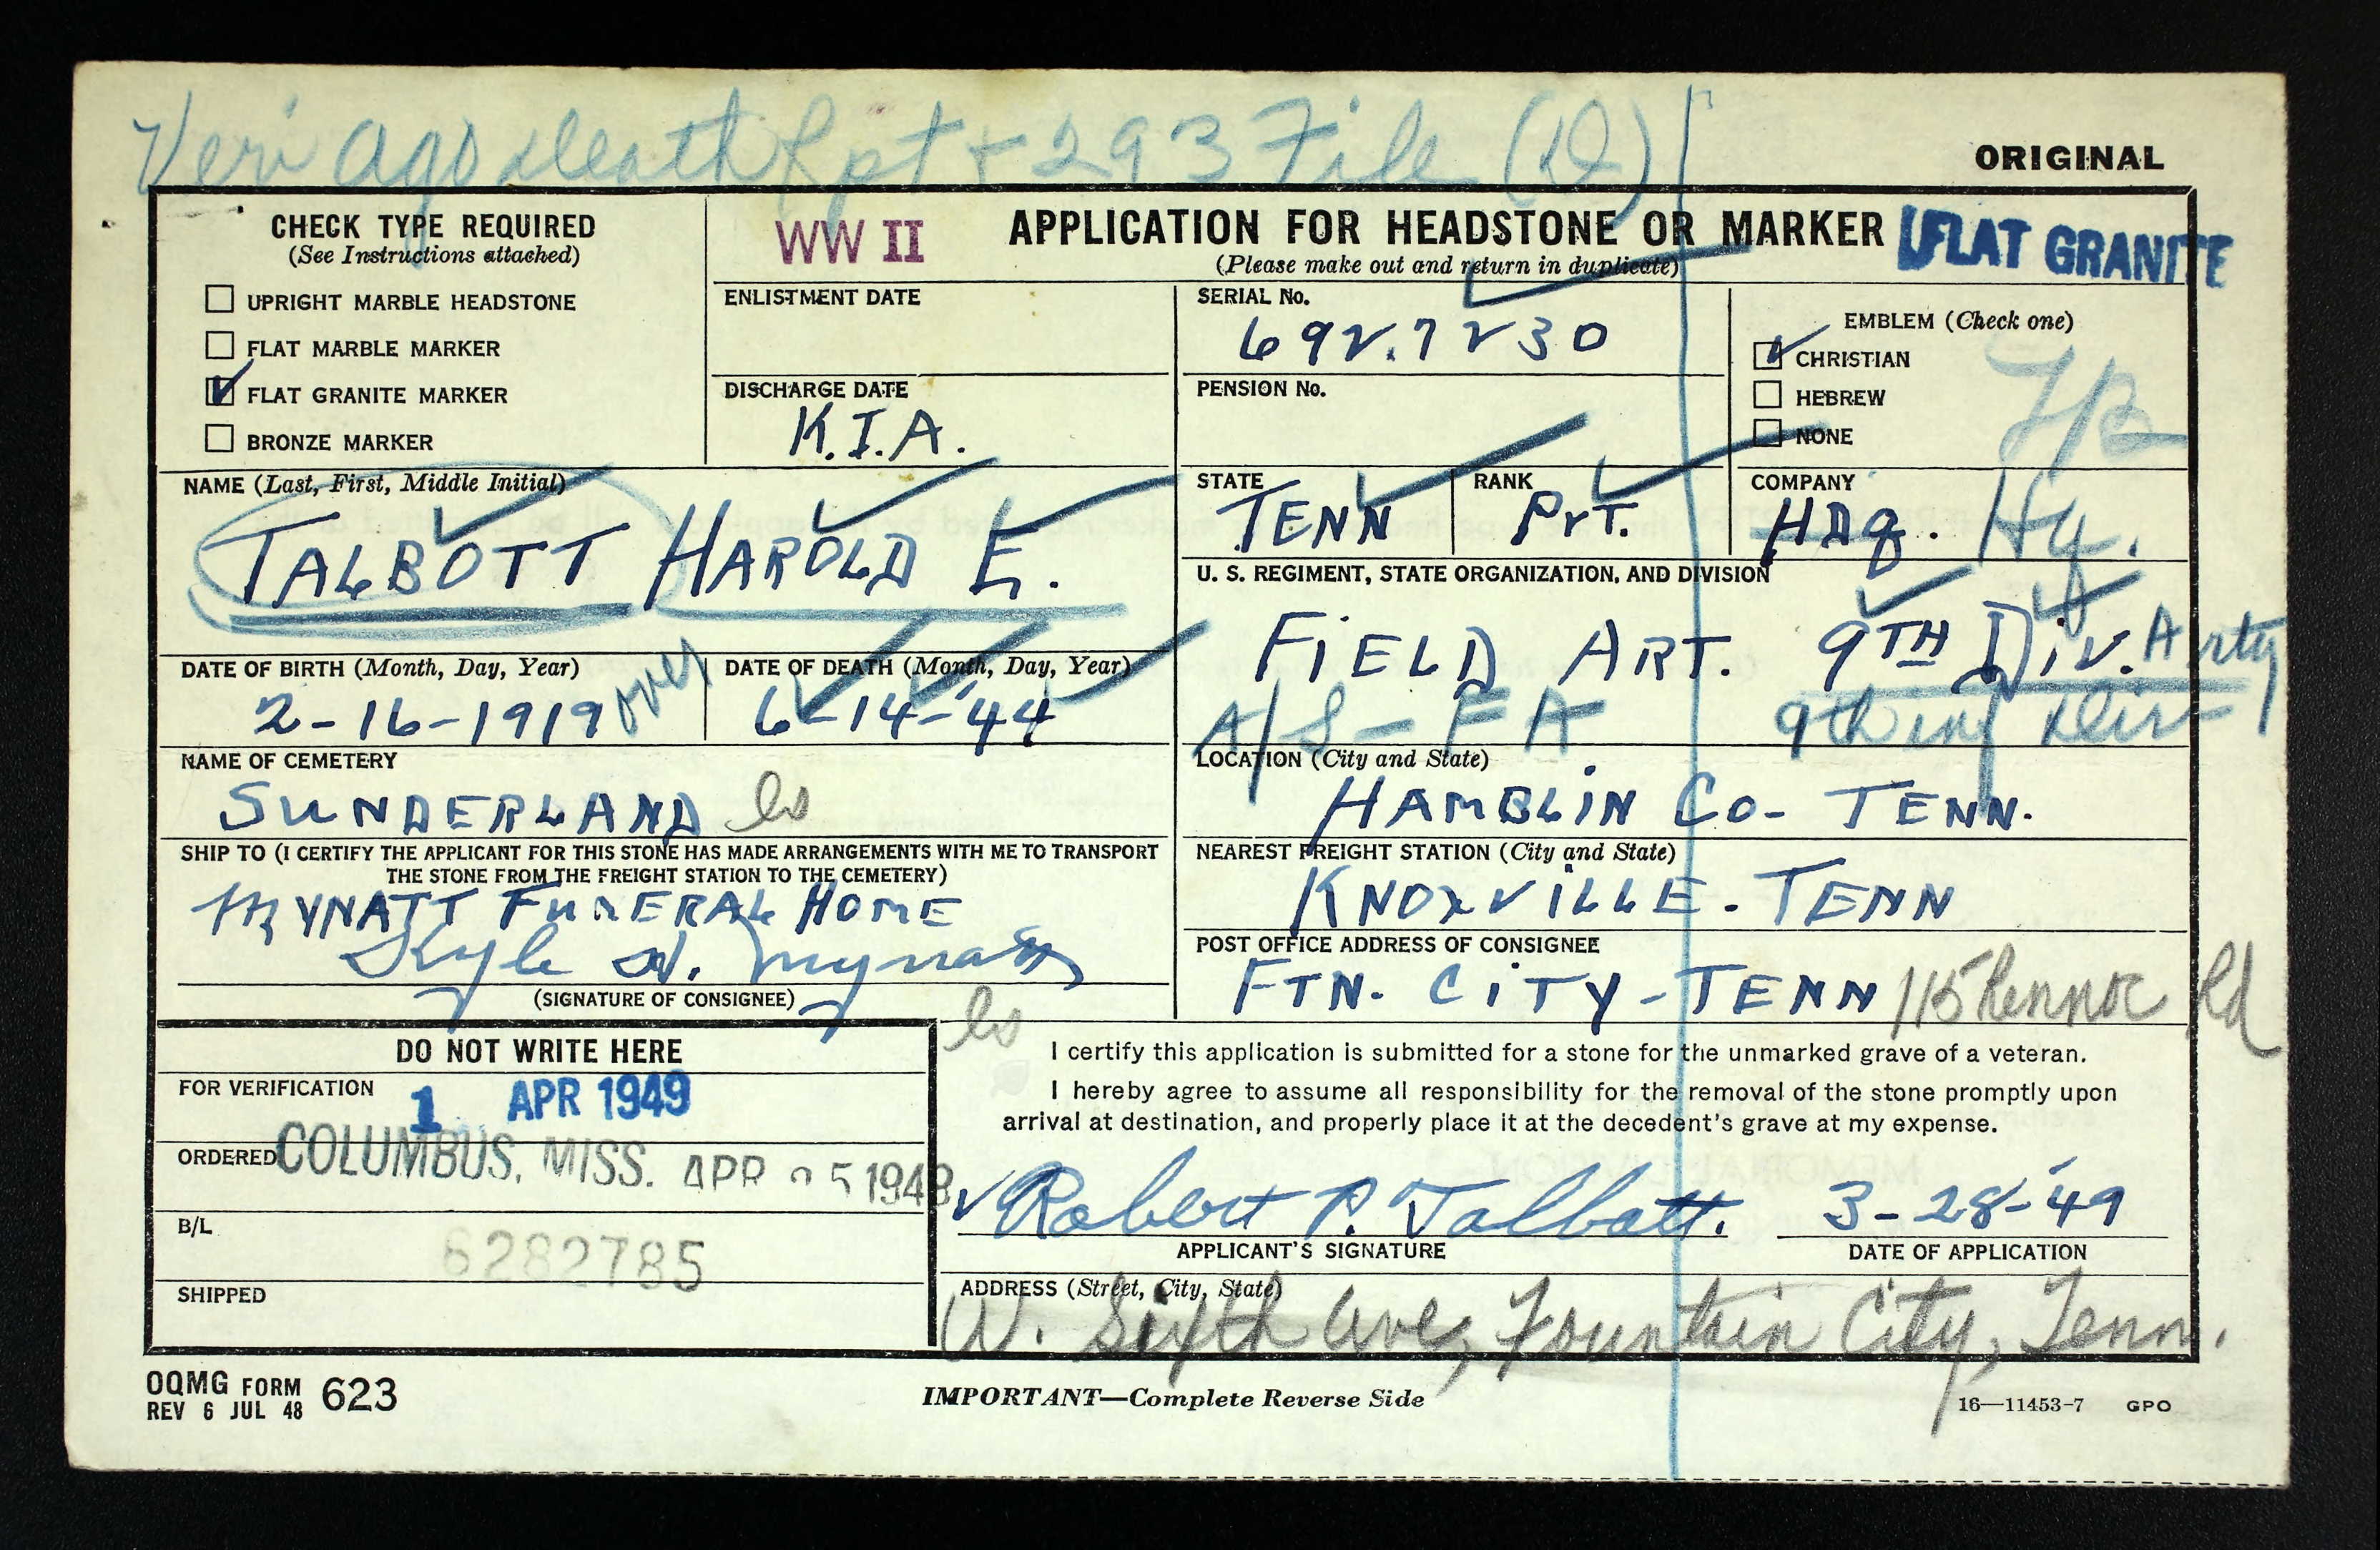 Veri Ago death Rpt + 293 File (D)
ORIGINAL
CHECK TYPE REQUIRED
(See Instructions attached)
UPRIGHT MARBLE HEADSTONE
FLAT MARBLE MARKER
FLAT GRANITE MARKER
BRONZE MARKER
WW II
APPLICATION FOR HEADSTONE OR MARKER
(Please make out and return in duplicate)
FLAT GRANITE
ENLISTMENT DATE
SERIAL No.
6927230
EMBLEM (Check one)
CHRISTIAN
HEBREW
NONE
DISCHARGE DATE
K.I.A.
PENSION No.
NAME (Last, First, Middle Initial)
TALBOTT HAROLD E.
STATE
TENN
RANK
PVT.
COMPANY
HDQ. Hq.
U. S. REGIMENT, STATE ORGANIZATION, AND DIVISION
FIELD ART. 9TH DIV. Arty
A/S-FA 9th inf Div
DATE OF BIRTH (Month, Day, Year)
2-16-1919
over
DATE OF DEATH (Month, Day, Year)
6-14-'44
NAME OF CEMETERY
SUNDERLAND
LOCATION (City and State)
HAMBLIN CO- TENN.
SHIP TO (I CERTIFY THE APPLICANT FOR THIS STONE HAS MADE ARRANGEMENTS WITH ME TO TRANSPORT
THE STONE FROM THE FREIGHT STATION TO THE CEMETERY)
MYNATT FUNERAL HOME
NEAREST FREIGHT STATION (City and State)
KNOXVILLE - TENN
Mynatt
(SIGNATURE OF CONSIGNEE)
POST OFFICE ADDRESS OF CONSIGNEE
FTN. CITY - TENN 115 Rd
DO NOT WRITE HERE
FOR VERIFICATION
1 APR 1949
ORDERED
COLUMBUS, MISS. APR 25 194
B/L
6282785
SHIPPED
I certify this application is submitted for a stone for the unmarked grave of a veteran.
I hereby agree to assume all responsibility for the removal of the stone promptly upon
arrival at destination, and properly place it at the decedent's grave at my expense.
Robert P. Talbott. 3-28-'49
APPLICANT'S SIGNATURE
DATE OF APPLICATION
ADDRESS (Street, City, State)
W. Sixth Ave, Fountain City, Tenn.
OQMG FORM 623
REV 6 JUL 48
IMPORTANT—Complete Reverse Side
16—11453-7 GPO